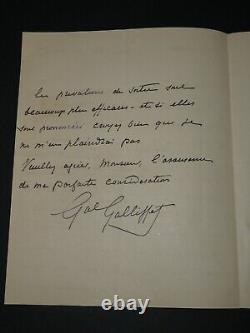 les privations de sortie sont
beaucoup plus efficaces - et si elles
sont prononcées croyez bien que je
ne m'en plaindrai pas
Veuillez agréer, Monsieur l'assurance
de ma parfaite considération
Gal Galliffet